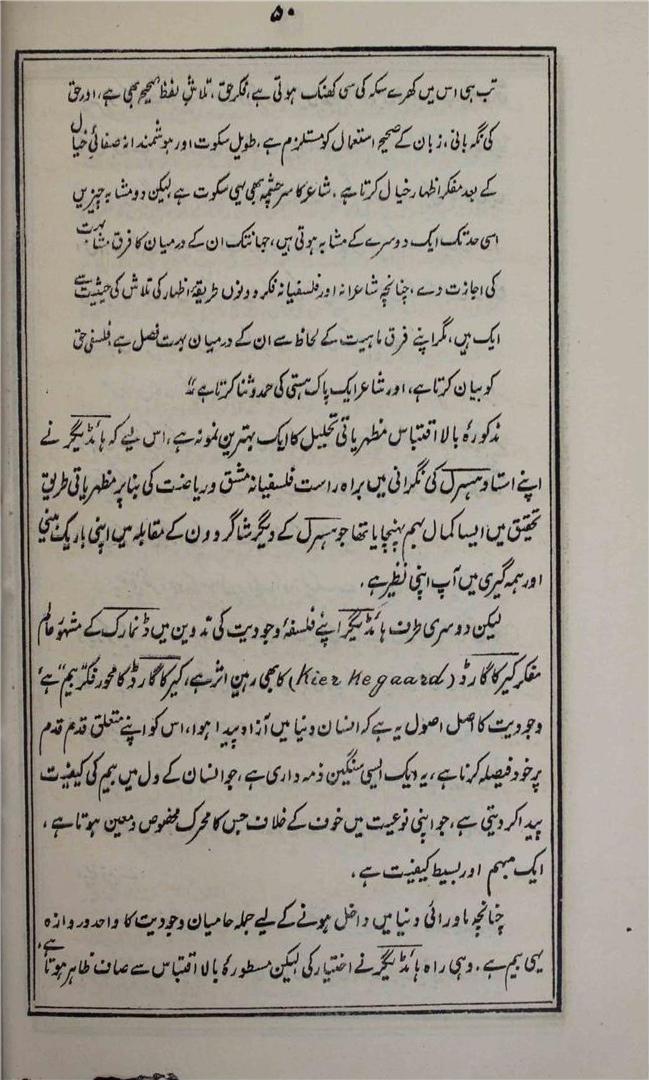 ۵۰
تب ہی اس میں کھرے سکہ کی سی کھنک ہوتی ہے، فکر حق، تلاشِ لفظ صحیح بھی ہے، اور حق
کی نگہبانی، زبان کے صحیح استعمال کو مستلزم ہے، طویل سکوت اور ہوشمندانہ صفائیِ خیال
کے بعد مفکر اظہار خیال کرتا ہے، شاعر کا سرچشمہ بھی یہی سکوت ہے لیکن دو مشابہ چیزیں
اسی حد تک ایک دوسرے کے مشابہ ہوتی ہیں، جہانتک ان کے درمیان کا فرق مشابہت
کی اجازت دے، چنانچہ شاعرانہ اور فلسفیانہ فکر دونوں طریقۂ اظہار کی تلاش کی حیثیت سے
ایک ہیں، مگر اپنے فرق ماہیت کے لحاظ سے ان کے درمیان بہت فصل ہے، فلسفی حق
کو بیان کرتا ہے، اور شاعر ایک پاک ہستی کی حمد و ثنا کرتا ہے"
مذکورۂ بالا اقتباس مظہریاتی تحلیل کا ایک بہترین نمونہ ہے، اس لیے کہ ہائڈیگر نے
اپنے استاد ہسرل کی نگرانی میں براہ راست فلسفیانہ مشق و ریاضت کی بنا پر مظہریاتی طریق
تحقیق میں ایسا کمال بہم پہنچایا تھا جو ہسرل کے دیگر شاگردون کے مقابلہ میں اپنی باریک بینی
اور ہمہ گیری میں آپ اپنی نظیر ہے،
لیکن دوسری طرف ہائڈیگر اپنے فلسفۂ وجودیت کی تدوین میں ڈنمارک کے مشہور عالم
مفکر کیرکا گارڈ (Kier Kegaard) کا بھی رہین اثر ہے، کیرکا گارڈ کا محور فکر "بیم" ہے،
وجودیت کا اصل اصول یہ ہے کہ انسان دنیا میں آزاد پیدا ہوا، اس کو اپنے متعلق قدم قدم
پر خود فیصلہ کرنا ہے، یہ ایک ایسی سنگین ذمہ داری ہے، جو انسان کے دل میں بیم کی کیفیت
پیدا کر دیتی ہے، جو اپنی نوعیت میں خوف کے خلاف جس کا محرک مخصوص و معین ہوتا ہے،
ایک مبہم اور بسیط کیفیت ہے،
چنانچہ ماورائی دنیا میں داخل ہونے کے لیے جملہ حامیان وجودیت کا واحد دروازہ
یہی بیم ہے، وہی راہ ہائڈیگر نے اختیار کی لیکن مسطورۂ بالا اقتباس سے صاف ظاہر ہوتا ہے،